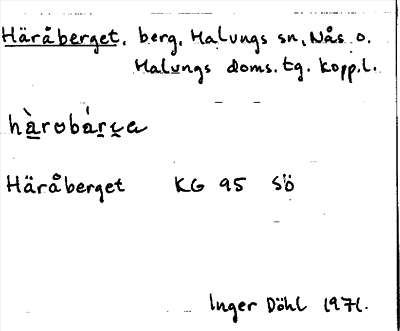 Häråberget, berg, Malungs sn, Nås o.
Malungs doms. tg. Kopp.l.
Häråberget KG 95 SÖ
Inger Döhl 1971.